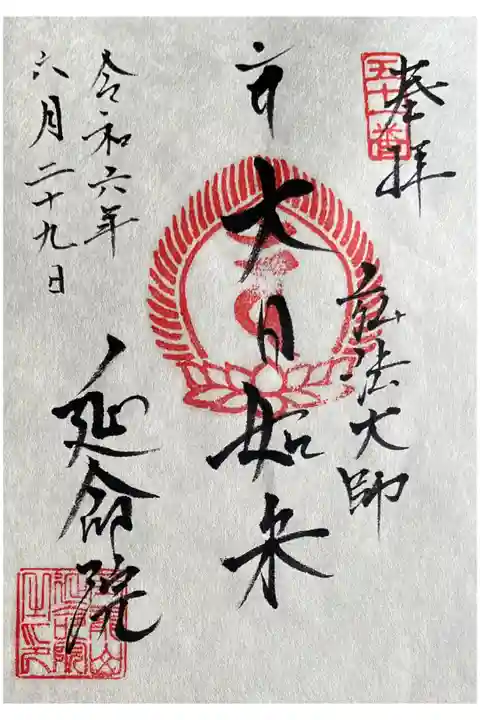 五十一番
奉拝
弘法大師
大日如来
令和六年
六月二十九日
延命院